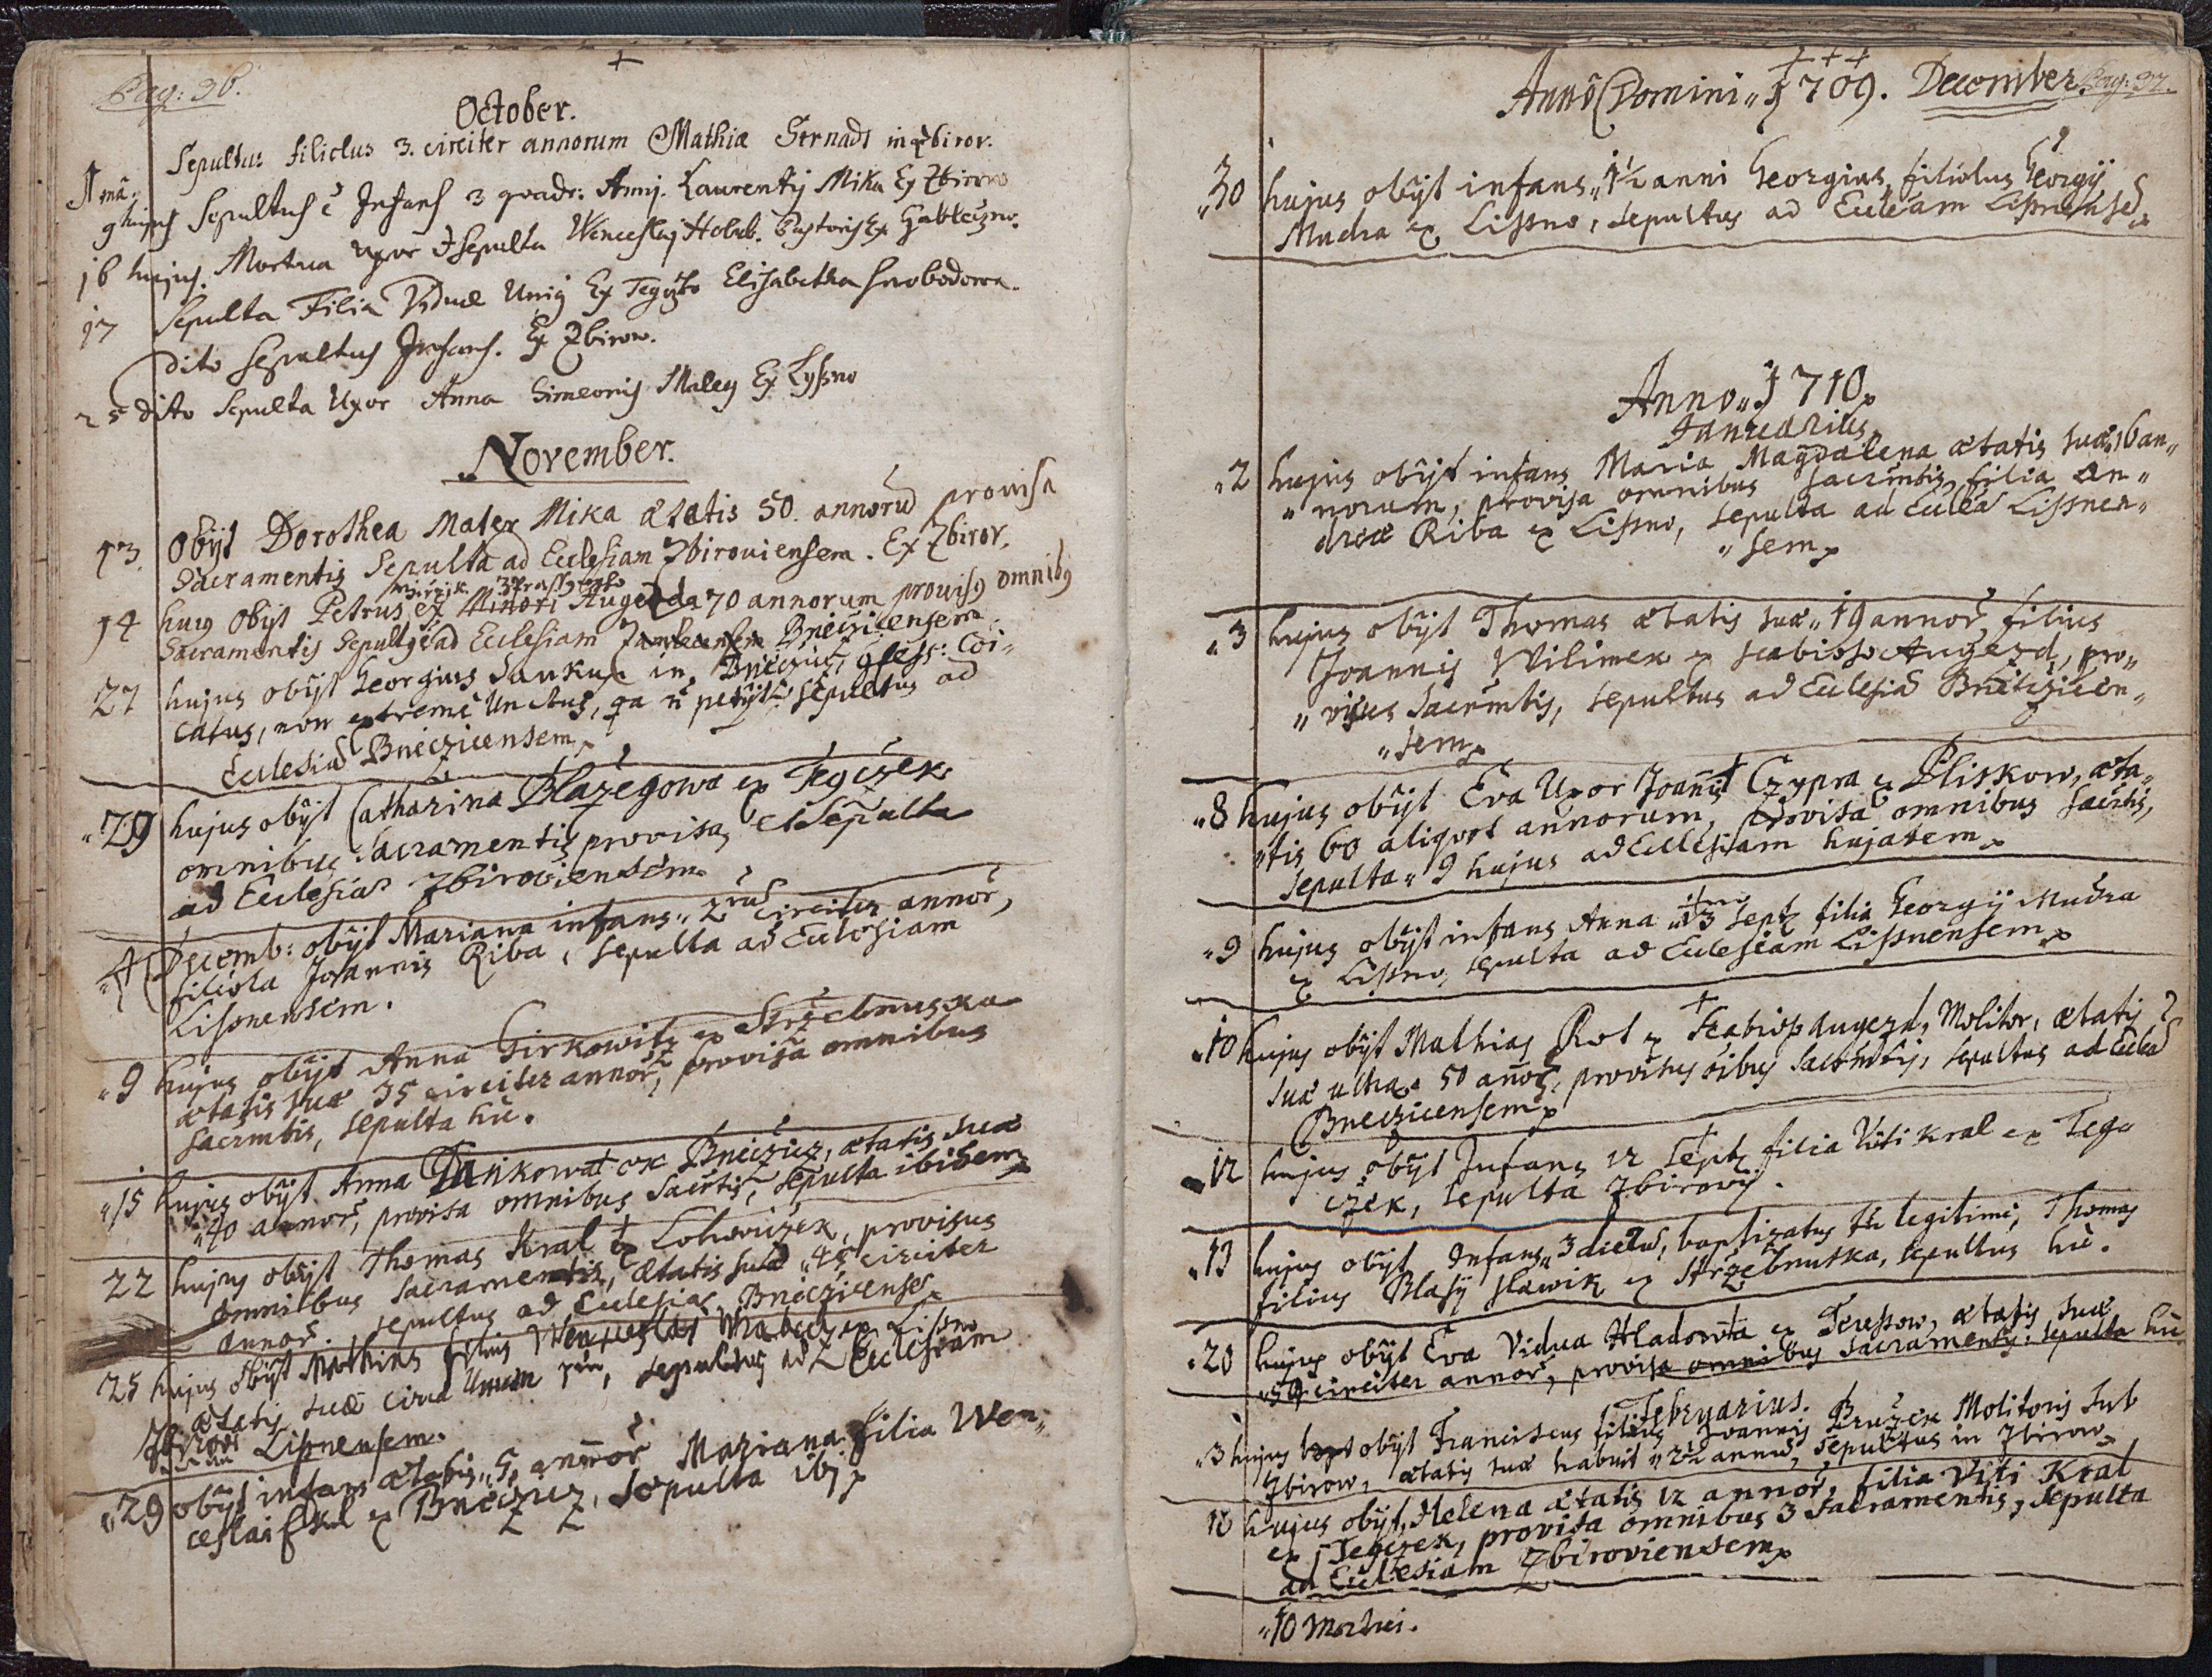 Pag: 36.
October.
Sepultus filiolus 3. circiter annorum Mathiæ in Zbirov.
9 hujus Sepultus ē Infans 3 quadr: Annj. Laurentij Mika Ex Zbirow
16 hujus. Mortua Uxor & Sepulta Wenceslaj Holub. Pastoris Ex
17 Sepulta Filia Viduæ Ex Elisabetha Swobodowa.
dito Sepultus Infans. Ex Zbirow.
25 dito Sepulta Uxor Anna Simeonis Maley Ex Lyssno
November.
13. Obijt Dorothea Mater Mika ætatis 50. annorū provisa
Sacramentis Sepulta ad Ecclesiam Zbiroviensem. Ex Zbirov.
14 huius Obijt Petrus ex Minori Augezda 70 annorum provisus omnibus
Sacramentis Sepultus ad Ecclesiam Bnecicensem
27 hujus obijt Georgius in Bneczicz,
catus, non extremè Unctus, qa ñ petijt: sepultus ad
Ecclesiā Bneczicensem
29 hujus obijt Catharina Blažegowa ex Tegczek
omnibus Sacramentis provisa, et Sepulta
ad Ecclesiā Zbiroviensem
4 Decemb: obijt Mariana infans 2rū circiter annoř,
filiola Joannis Riba, sepulta ad Ecclesiam
Lissnensem.
9 hujus obijt Anna Girkowitz ex Strzebnuska
ætatis suæ 35 circiter annoř, provisa omnibus
sacrmtis, sepulta hic.
15 hujus obijt Anna Dankowa ex Bneczicz, ætatis suæ
40 annoř, provisa omnibus Sacrtis, sepulta ibidem
22 hujus obijt Thomas Kral ex Lohowiczek, provisus
omnibus Sacramentis, ætatis suæ 45 circiter
annoř. sepultus ad Ecclesiā Bneczicense
25 hujus obijt Mathias filius Wenceslai ex Lissno
ætatis suæ circa Unum sepultus ad Ecclesiam
Lissnensem.
29 obijt infans ætatis 5. annoř Mariana filia Wen,,
ceslai ex Bneczicz, sepulta ibj.
Annô Domini 1709. December. Pag: 37.
30 hujus obijt infans 1½ anni Georgius filiolus Georgÿ
Mudra ex Lissno, sepultus ad Eccleām Lissnensē
Anno 1710
Januarius
2 hujus obijt infans Maria Magdalena ætatis suæ 16 an,,
,,norum, provisa omnibus sacrmtis, filia An,,
dreæ Riba ex Lissno, sepulta ad Eccleā Lissnen,,
,,sem
3 hujus obijt Thomas ætatis suæ 19 annoř, filius
Joannis Wilimek ex Augezd, pro,,
,,visus Sacrmtis, sepultus ad Ecclesiā Bneticzicen,,
,,sem
8 hujus obijt Eva Uxor Joannis Czypra ex Pliskow, æta,,
,,tis 60 aliquot annorum, provisa omnibus Sacrtis,
sepulta 9 hujus ad Ecclesiam hujatem
9 hujus obijt infans Anna 13 Sept filia Georgÿ Mudra
ex Lissno, sepulta ad Ecclesiam Lissnensem
10 hujus obijt Mathias Rot ex Augezd, Molitor, ætatis
suæ ultra 50 annoř, provisus oibus Sacrmtis, sepultus ad Eccleā
Bneczicensem
12 hujus obijt Infans 12 Sept filia Viti Kral ex Teg
czek, sepulta Zbirowÿ.
13 hujus obijt Infans 3 dierū, baptizatus legitimè, Thomas
filius Blasÿ Slawik ex Strzebnuska, sepultus hic.
20 hujus obijt Eva Vidua Hladowa ex Teressow, ætatis suæ
59 circiter annoř, provisa omnibus Sacramentis: sepulta hic
Februarius.
3 hujus obijt Franciscus filius Joannis Bružek Molitoris sub
Zbirow, ætatis suæ habuit 2½ annū, sepultus in Zbirow
10 hujus obijt Helena ætatis 12 annoř, filia Viti Kral
ex Tegczek, provisa omnibus 3 Sacramentis, sepulta
ad Ecclesiam Zbiroviensem
10 Mortui.